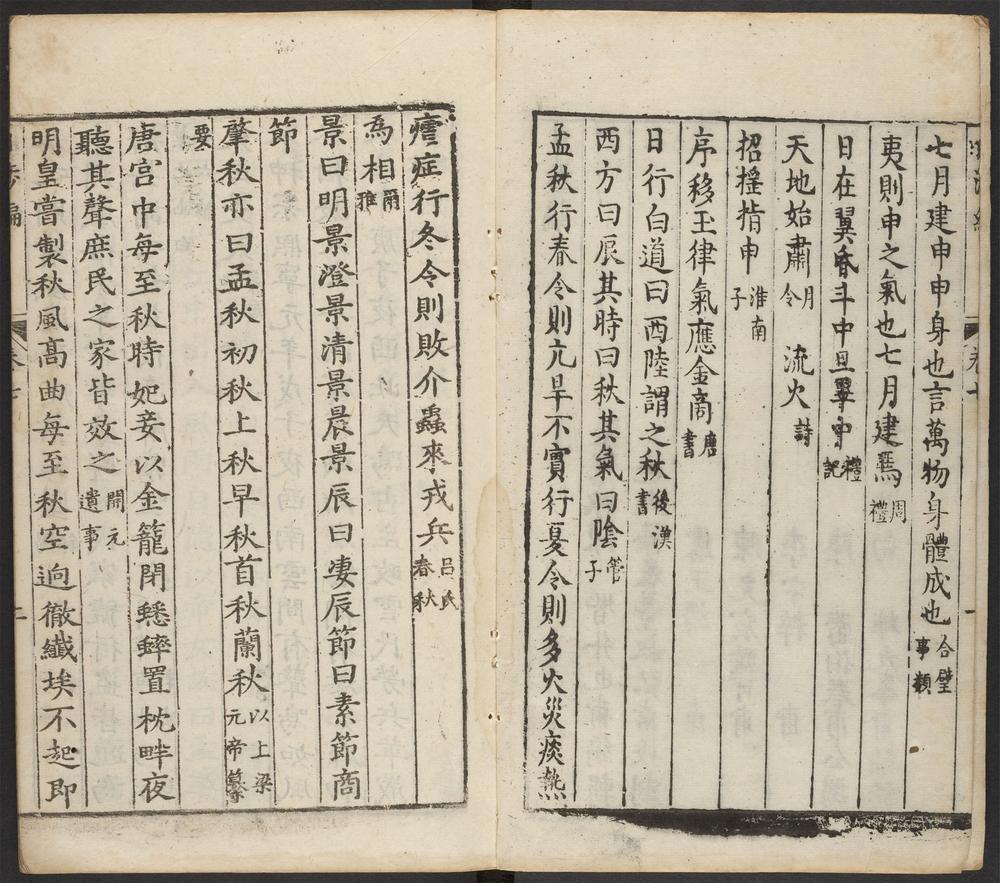 七月建申申身也言萬物身體成也合璧事類
夷則申之氣也七月建焉周禮
日在翼昏斗中旦畢中禮記
天地始肅月令 流火詩
招搖指申淮南子
序移玉律氣應金商唐書
日行白道曰西陸謂之秋後漢書
西方曰辰其時曰秋其氣曰陰管子
孟秋行春令則亢旱不實行夏令則多火災痰熱
瘧症行冬令則敗介蟲來戎兵呂氏春秋
為相爾雅
景曰明景澄景清景晨景辰曰凄辰節曰素節商
節
肇秋亦曰孟秋初秋上秋早秋首秋蘭秋以上梁元帝纂
要
唐宮中每至秋時妃妾以金籠閉蟋蟀置枕畔夜
聽其聲庶民之家皆效之開元遺事
明皇嘗製秋風高曲每至秋空迥徹纖埃不起即
卷七